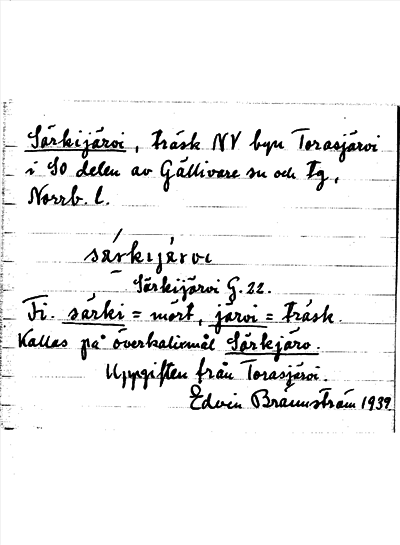 Särkijärvi, träsk NV byn Torasjärvi
i SO delen av Gällivare sn och tg,
Norrb. l.
särkijärvi
Särkijärvi G. 22.
Fi. särki = mört, järvi = träsk.
Kallas på överkalixmål Särkjärv.
Uppgiften från Torasjärvi.
Edvin Brännström 1939